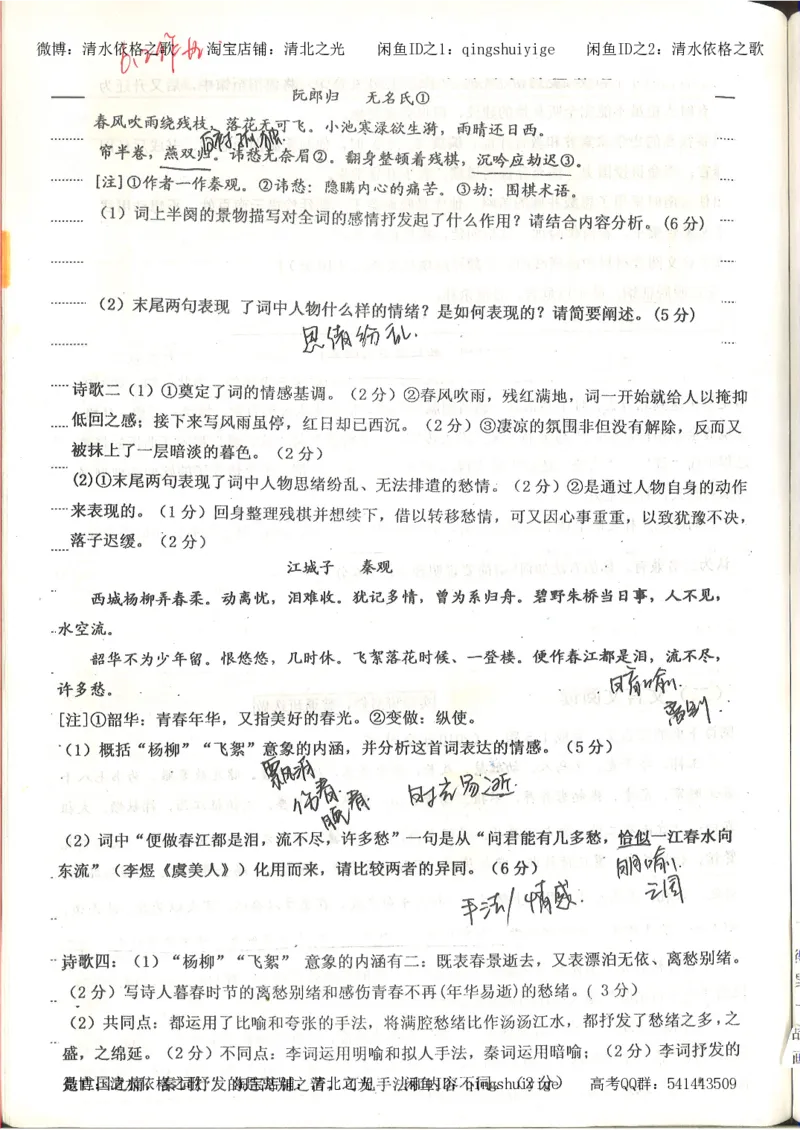 微博：清水依格之歌 淘宝店铺：清北之光 闲鱼ID之1：qingshuiyige 闲鱼ID之2：清水依格之歌
阮郎归 无名氏①
春风吹雨绕残枝，落花无可飞。小池寒渌欲生漪，雨晴还日西。
帘半卷，燕双归。讳愁无奈眉②。翻身整顿着残棋，沉吟应劫迟③。
[注]①作者一作秦观。②讳愁：隐瞒内心的痛苦。③劫：围棋术语。
（1）词上半阕的景物描写对全词的感情抒发起了什么作用？请结合内容分析。(6分)
（2）末尾两句表现 了词中人物什么样的情绪？是如何表现的？请简要阐述。(5分)
思绪纷乱.
诗歌二（1）①奠定了词的情感基调。（2分）②春风吹雨，残红满地，词一开始就给人以掩抑
低回之感；接下来写风雨虽停，红日却已西沉。（2分）③凄凉的氛围非但没有解除，反而又
被抹上了一层暗淡的暮色。（2分）
(2)①末尾两句表现了词中人物思绪纷乱、无法排遣的愁情。（2分）②是通过人物自身的动作
来表现的。（1分）回身整理残棋并想续下，借以转移愁情，可又因心事重重，以致犹豫不决，
落子迟缓。（2分）
江城子 秦观
西城杨柳弄春柔。动离忧，泪难收。犹记多情，曾为系归舟。碧野朱桥当日事，人不见，
水空流。
韶华不为少年留。恨悠悠，几时休。飞絮落花时候、一登楼。便作春江都是泪，流不尽，
许多愁。
暗喻.
离别.
[注]①韶华：青春年华，又指美好的春光。②变做：纵使。
（1）概括“杨柳”“飞絮”意象的内涵，并分析这首词表达的情感。（5分）
飘泊
伤春
时光易逝.
（2）词中“便做春江都是泪，流不尽，许多愁”一句是从“问君能有几多愁，恰似一江春水向
东流”（李煜《虞美人》）化用而来，请比较两者的异同。（6分）
明喻.
亡国
手法/情感.
诗歌四：（1）“杨柳”“飞絮” 意象的内涵有二：既表春景逝去，又表漂泊无依、离愁别绪。
（2分）写诗人暮春时节的离愁别绪和感伤青春不再(年华易逝)的愁绪。（3分）
（2）共同点：都运用了比喻和夸张的手法，将满腔愁绪比作汤汤江水，都抒发了愁绪之多，之
盛，之绵延。（2分）不同点：李词运用明喻和拟人手法，秦词运用暗喻；（2分）李词抒发的
高考QQ群：541443509